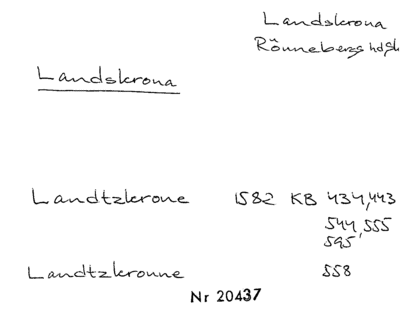 Landskrona
Rönnebergs hd, Sk
Landskrona
Landtzkrone 1582 KB 434,443
544,555
595,
Landtzkronne 558
Nr 20437